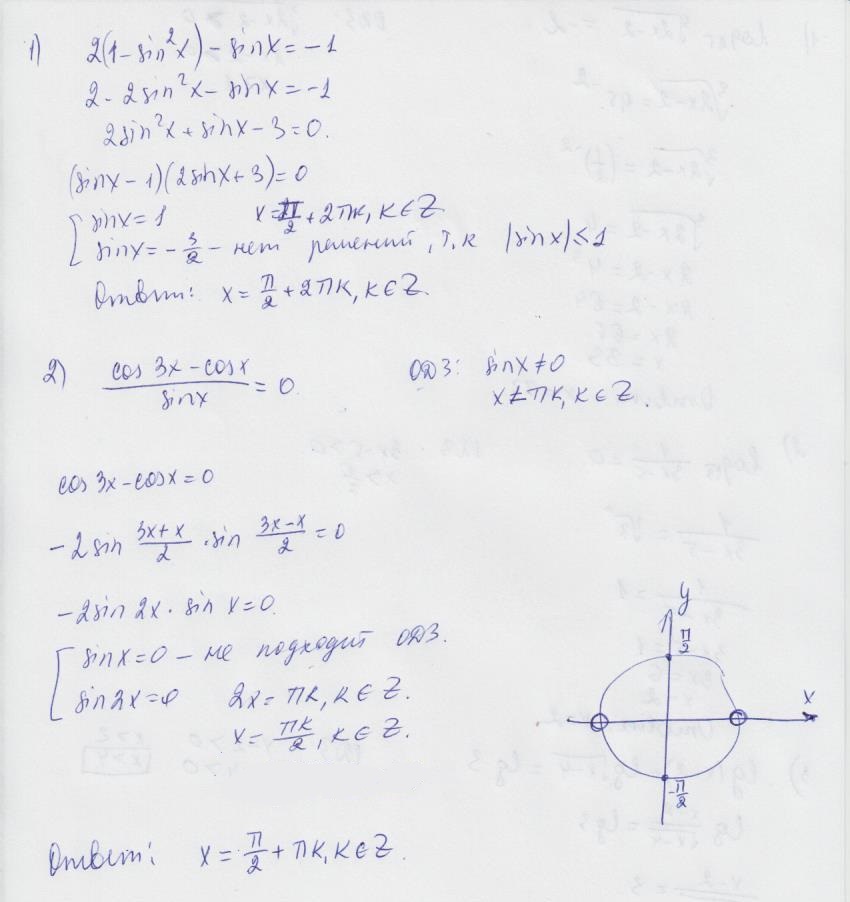 1) 2(1-sin²x)-sinx=-1
2-2sin²x-sinx=-1
2sin²x+sinx-3=0.
(sinx-1)(2sinx+3)=0
[sinx=1 x=π/2+2πk, k∈Z
sinx=-3/2 - нет решений, т.к |sinx|≤1
Ответ: x=π/2+2πk, k∈Z.
2) (cos 3x-cosx)/sinx=0. ОДЗ: sinx≠0
x≠πk, k∈Z.
cos 3x-cosx=0
-2 sin (3x+x)/2 · sin (3x-x)/2=0
-2sin 2x · sin x=0.
[sinx=0 - не подходит ОДЗ.
sin2x=0 2x=πk, k∈Z.
x=πk/2, k∈Z.
y
π/2
x
-π/2
Ответ: x=π/2+πk, k∈Z.